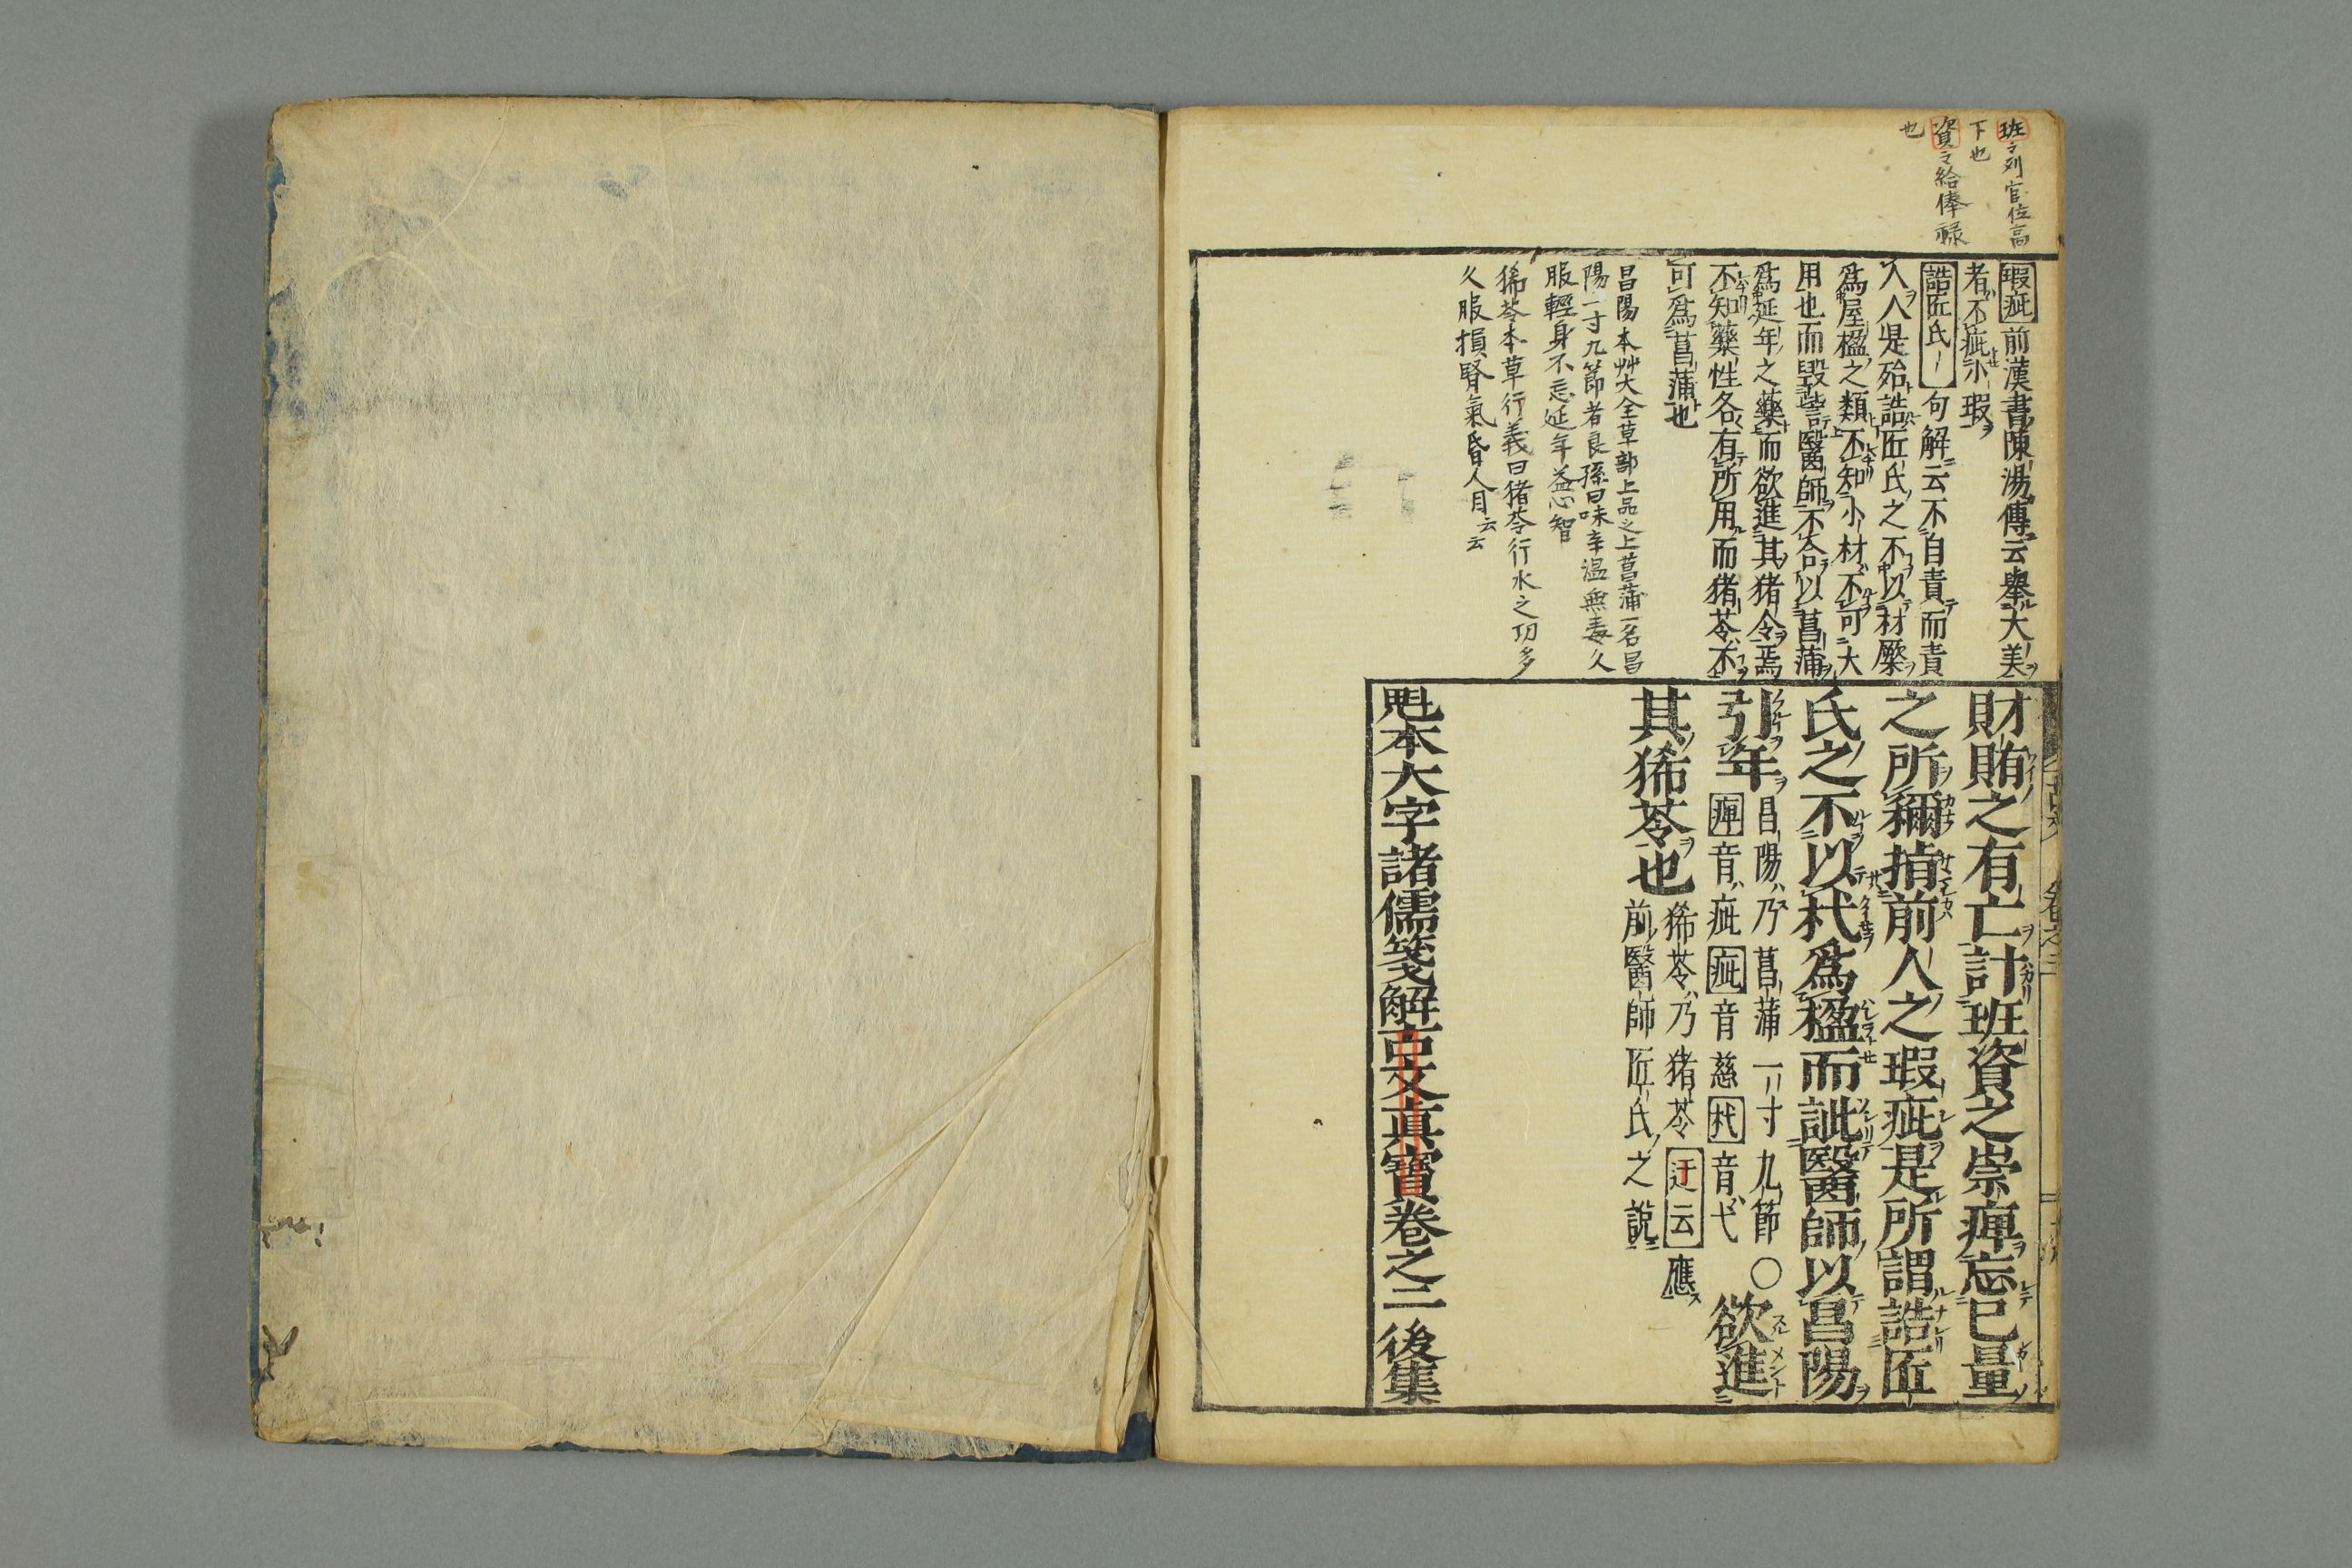 班々列官位高
下也
資々給俸禄
也
瑕疵前漢書陳湯傳云擧大美
者不疵小瑕
詰匠氏句解云不自責而責
人人是殆詰匠氏之不以材檿
爲屋楹之類不知小材不可大
用也而毀訾醫師不合以菖蒲
爲延年之藥而欲進其猪令焉
不知藥性各有所用而猪苓不
可爲菖蒲也
昌陽本艸大全草部上品之上菖蒲一名昌
陽一寸九節者良孫曰味辛温無毒久
服輕身不忘延年益心智
豨苓本草行義曰猪苓行水之功多
久服損腎氣昏人目云云
財賄之有亡計班資之崇痺忘已量
之所稱揹前人之瑕疵是所謂詰匠
氏之不以杙爲楹而訿醫師以昌陽
引年昌陽乃菖蒲一寸九節○
痺音疵疵音慈杙音弋
欲進
其豨苓也豨苓乃猪苓迂云應
前醫師匠氏之說
魁本大字諸儒箋解古文眞寶卷之二後集